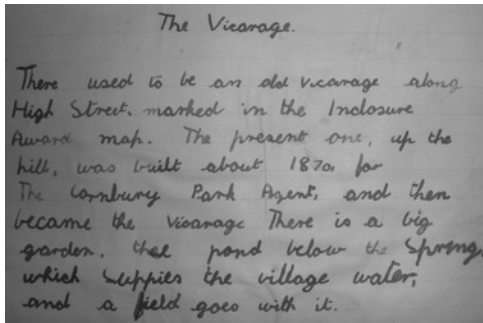 The Vicarage.
There used to be an old vicarage along
High Street, marked in the Inclosure
Award map. The present one, up the
hill, was built about 1870, for
The Cornbury Park Agent, and then
became the Vicarage There is a big
garden, the pond below the Spring,
which Suppies the village water,
and a field goes with it.